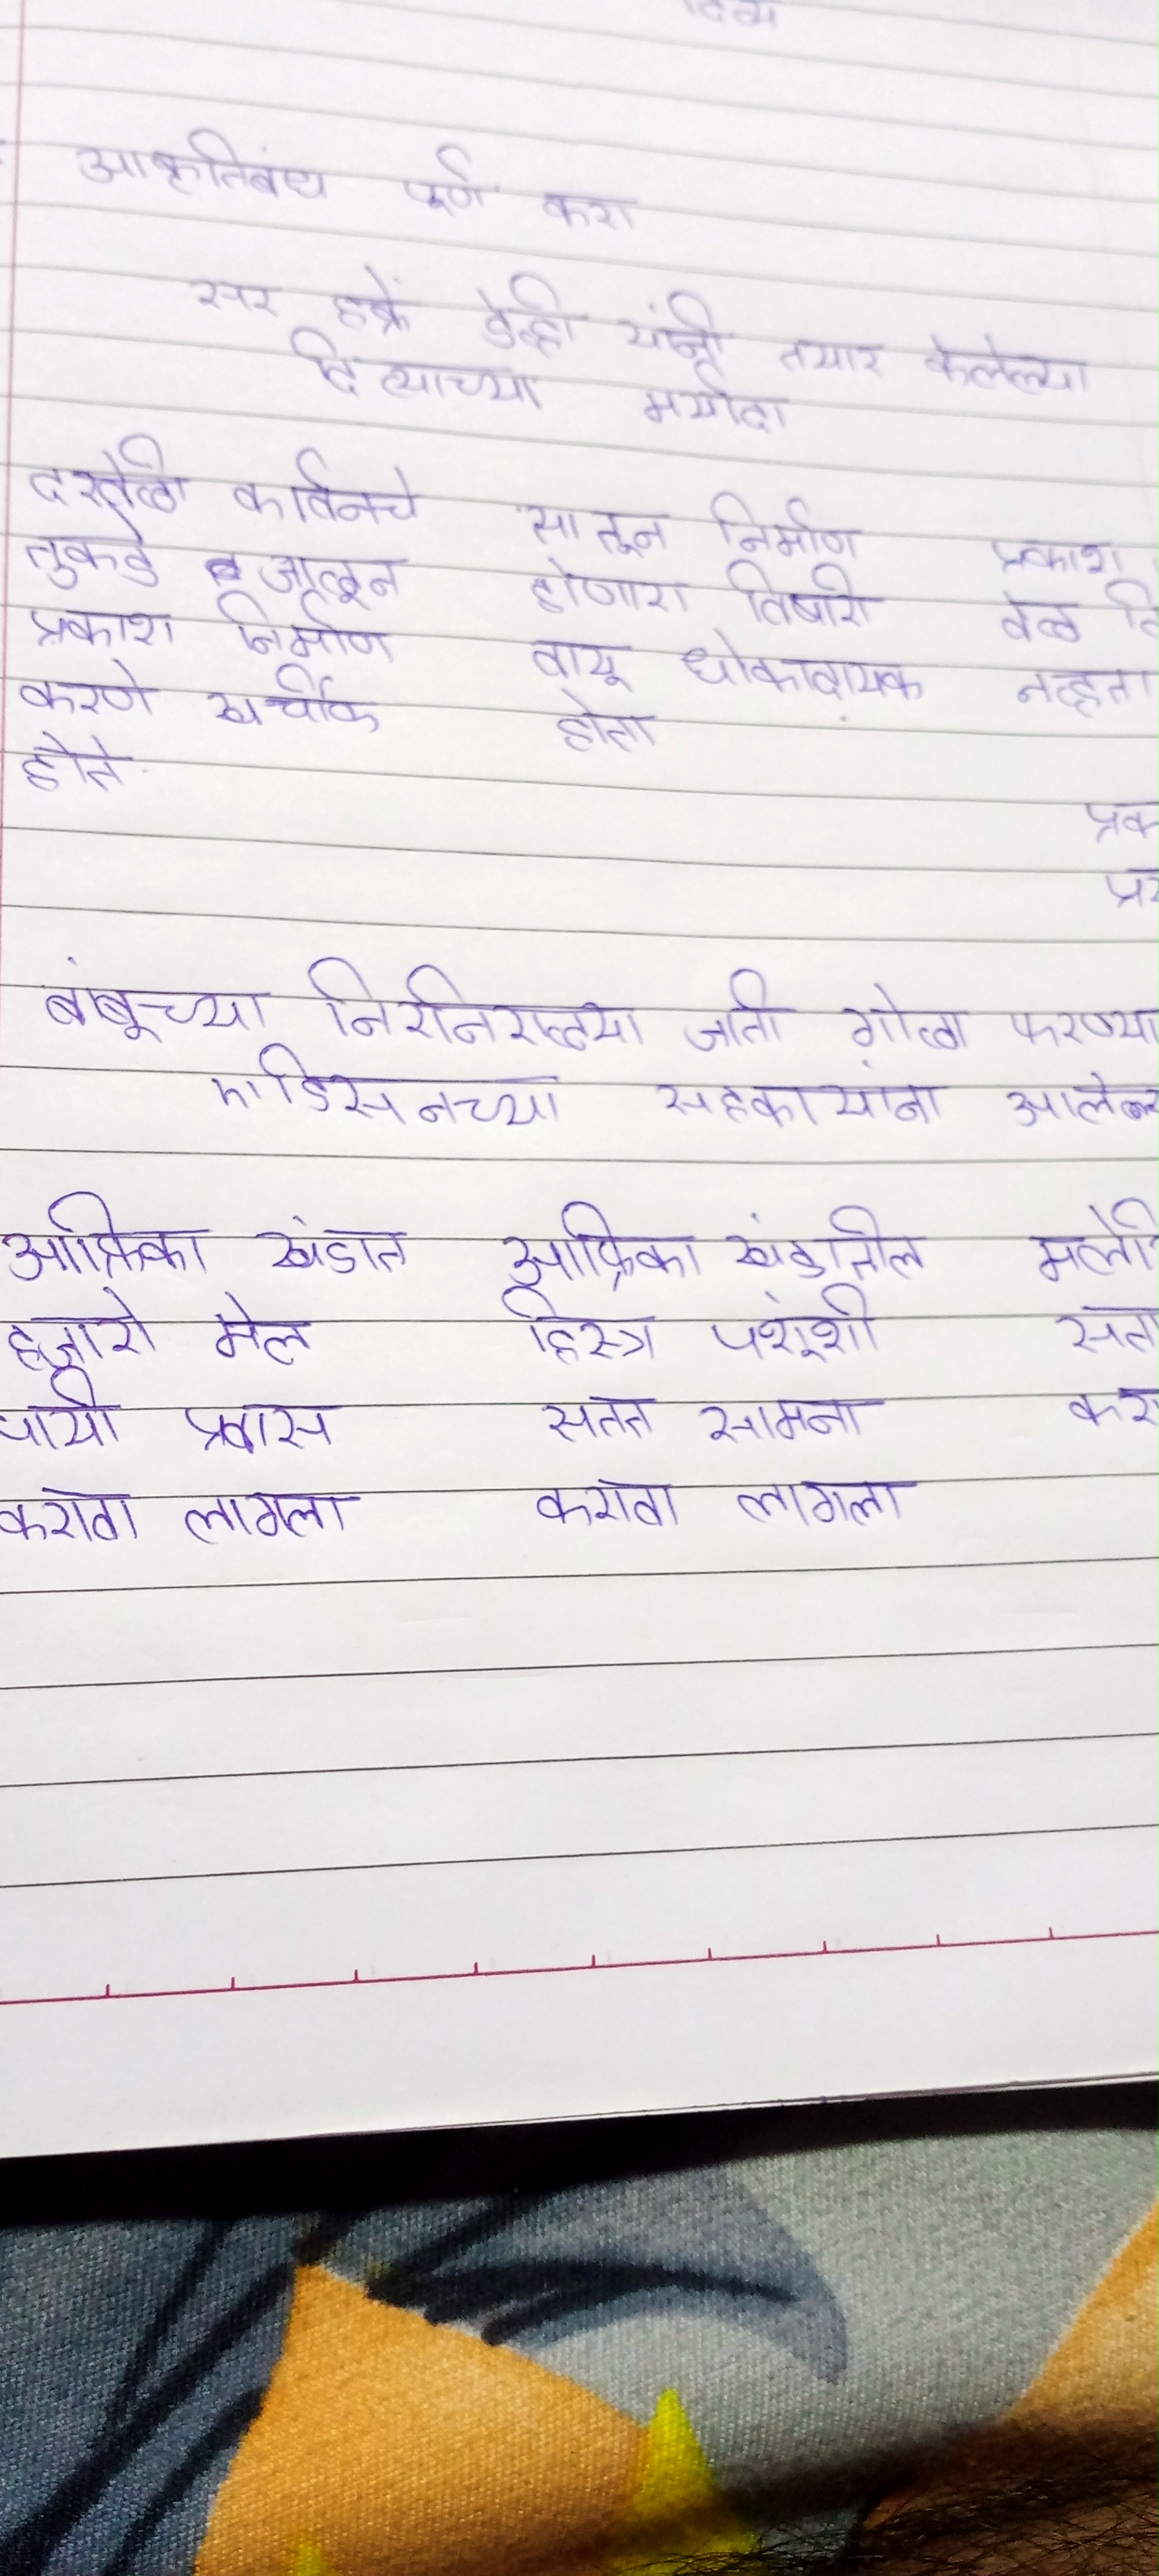 दिव्य
आकृतिबंध पूर्ण करा
सर हंफ्रे डेव्ही यांनी तयार केलेल्या
दिव्याच्या मर्यादा
दरवेळी कार्बनचे सातून निर्माण प्रकाश
तुकडे जाळून होणारा विषारी वेळ
प्रकाश निर्माण वायू धोकादायक नव्हता
करणे खर्चीक होता
होते.
प्रक
प्र
बांबूच्या निरनिराळ्या जाती गोळा करण्या
एडिसनच्या सहकार्यांना आलेल्य
आफ्रिका खंडात आफ्रिका खंडातील मले
हजारो मैल हिस्त्र पशूंशी सत
पायी प्रवास सतत सामना करा
करावा लागला करावा लागला